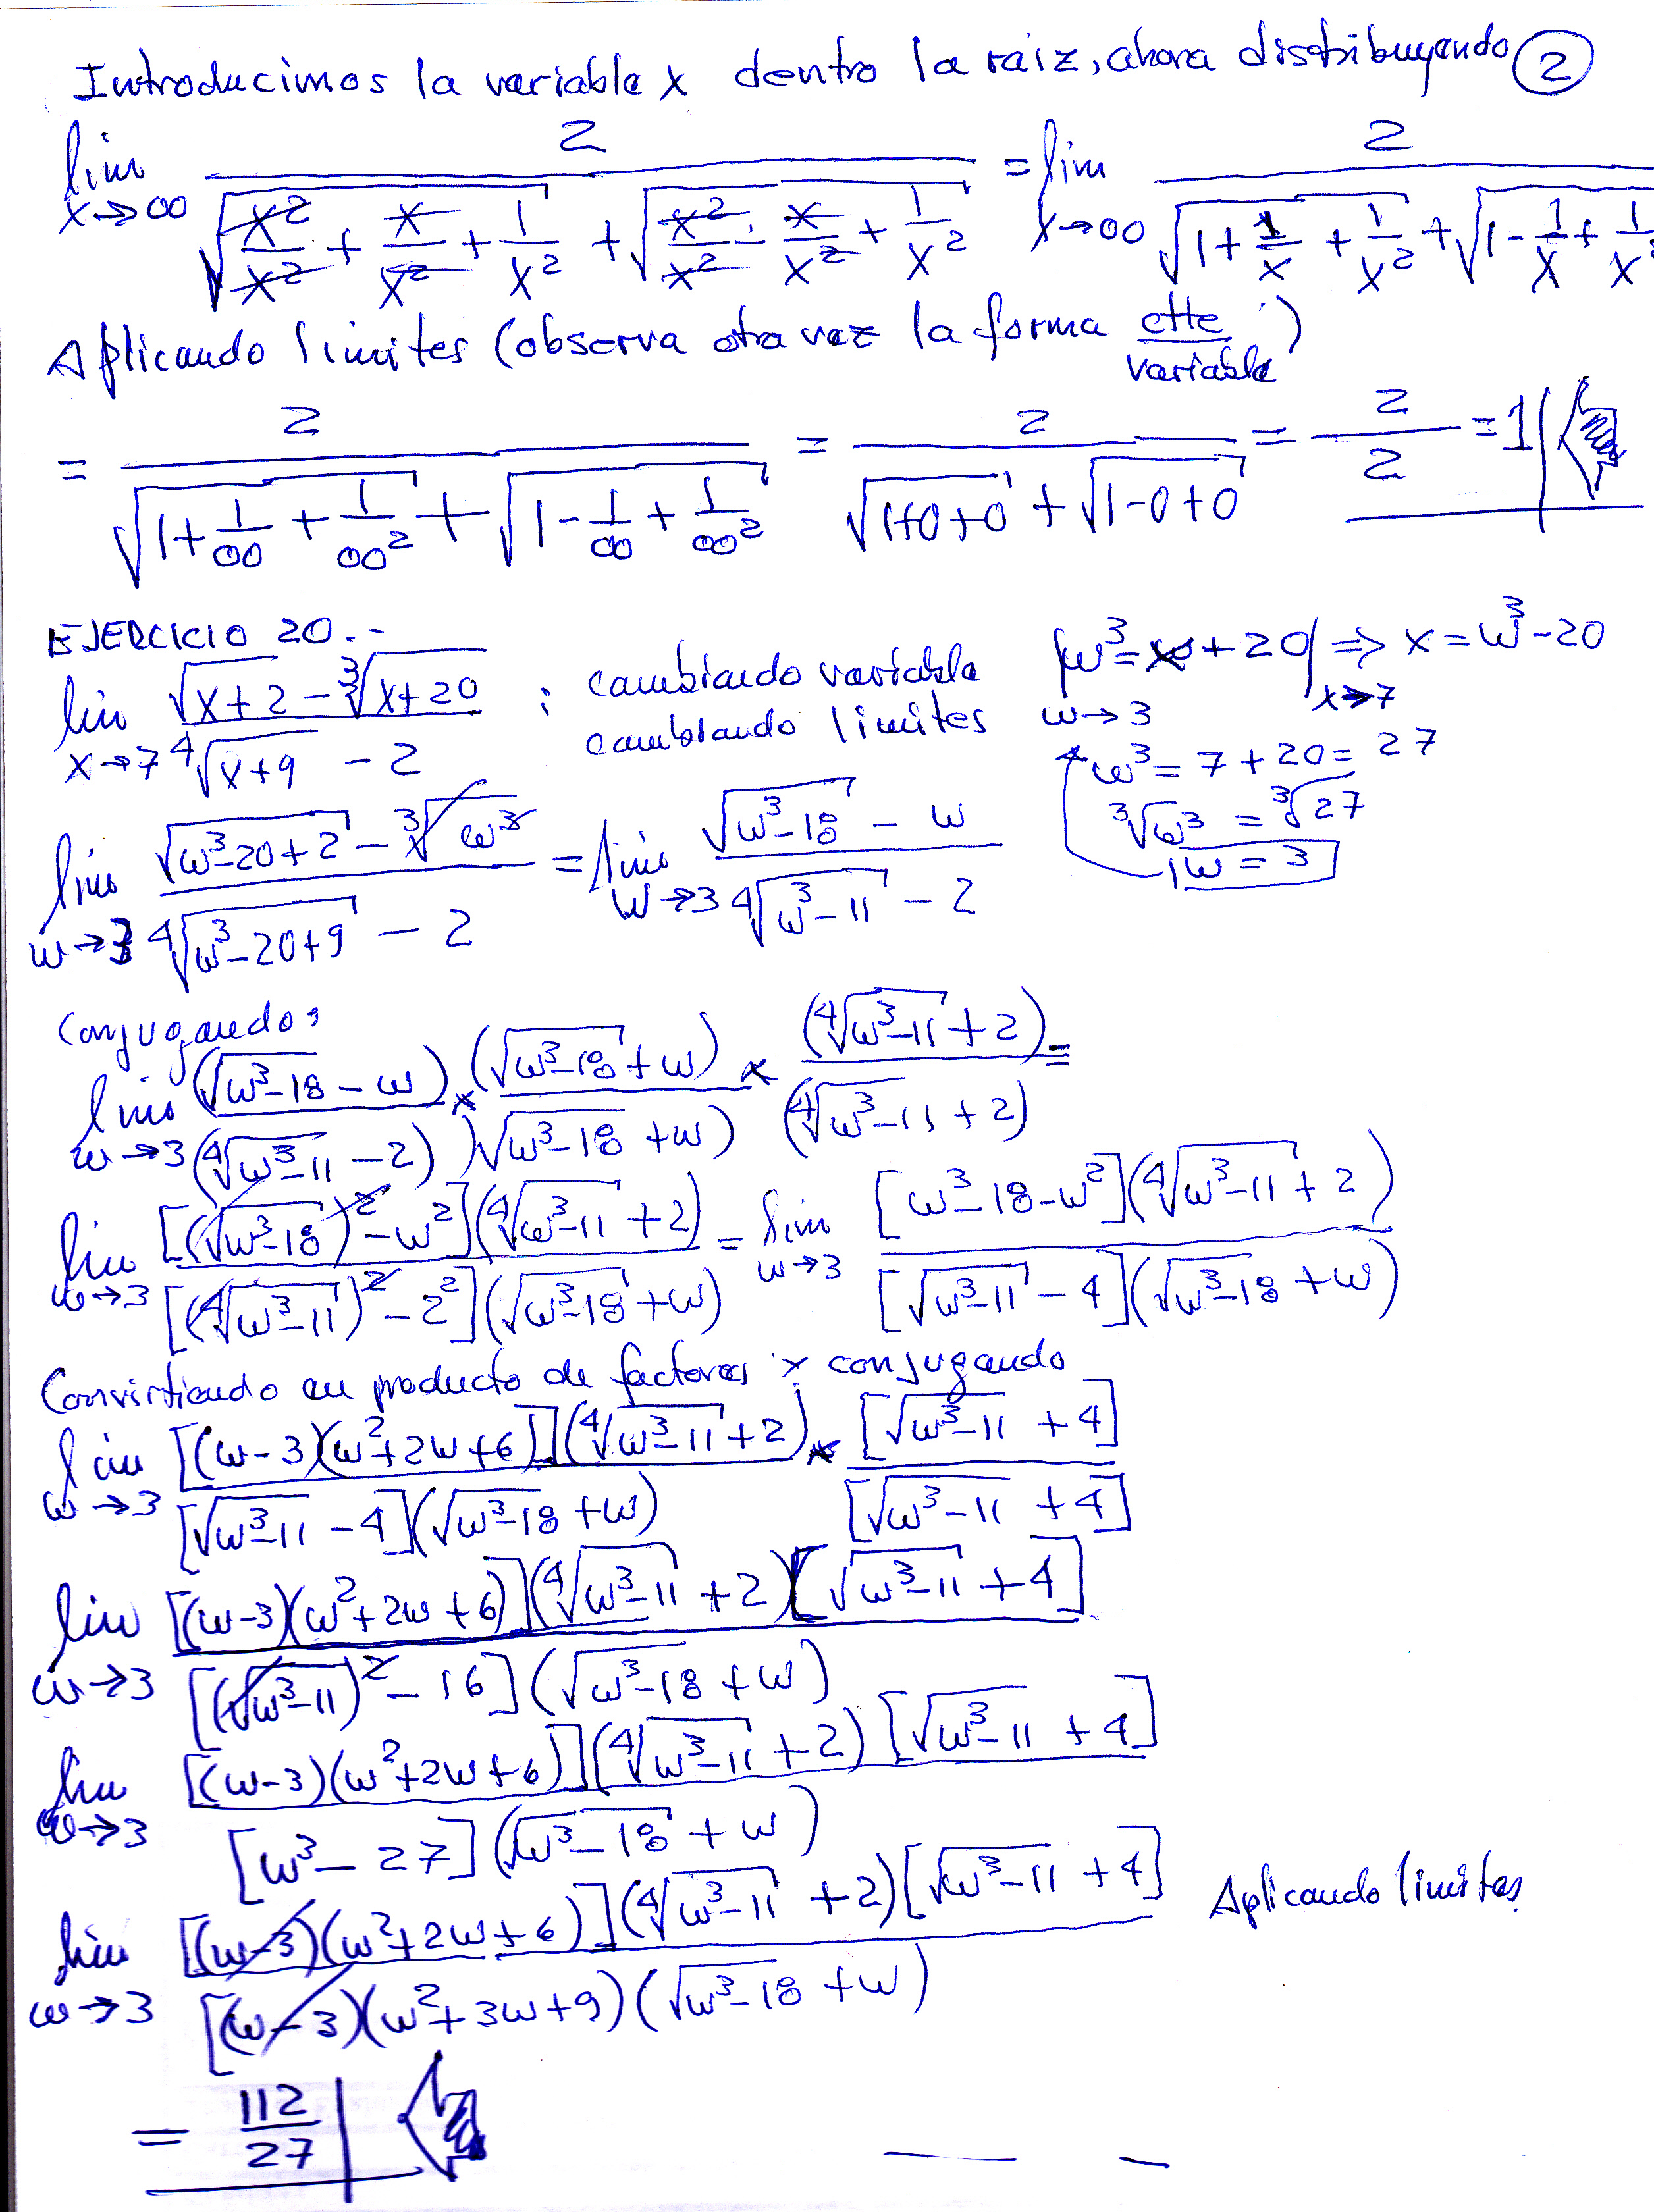 Introducimos la variable x dentro la raiz, ahora distribuyendo ②
lim x→∞ 2 / (√(x²/x² + x/x² + 1/x²) + √(x²/x² - x/x² + 1/x²)) = lim x→∞ 2 / (√(1 + 1/x + 1/x²) + √(1 - 1/x + 1/x²
Aplicando limites (observa otra vez la forma ctte/variable)
= 2 / (√(1 + 1/∞ + 1/∞²) + √(1 - 1/∞ + 1/∞²)) = 2 / (√(1+0+0) + √(1-0+0)) = 2/2 = 1
EJERCICIO 20.-
lim x→7 (√(x+2) - ∛(x+20)) / (∜(x+9) - 2) ; cambiando variable w³ = x+20 ⇒ x = w³-20
cambiando limites w→3 x→7
w³ = 7+20 = 27
∛w³ = ∛27
w = 3
lim w→3 (√(w³-20+2) - ∛w³) / (∜(w³-20+9) - 2) = lim w→3 (√(w³-18) - w) / (∜(w³-11) - 2)
Conjugando:
lim w→3 (√(w³-18) - w) / (∜(w³-11) - 2) × (√(w³-18) + w) / (√(w³-18) + w) × (∜(w³-11) + 2) / (∜(w³-11) + 2) =
lim w→3 [(√(w³-18))² - w²](∜(w³-11) + 2) / [(∜(w³-11))² - 2²](√(w³-18) + w) = lim w→3 [w³-18-w²](∜(w³-11) + 2) / [√(w³-11) - 4](√(w³-18) + w)
Convirtiendo en producto de factores y conjugando
lim w→3 [(w-3)(w²+2w+6)](∜(w³-11) + 2) / [√(w³-11) - 4](√(w³-18) + w) × [√(w³-11) + 4] / [√(w³-11) + 4]
lim w→3 [(w-3)(w²+2w+6)](∜(w³-11) + 2)[√(w³-11) + 4] / [(√(w³-11))² - 16](√(w³-18) + w)
lim w→3 [(w-3)(w²+2w+6)](∜(w³-11) + 2)[√(w³-11) + 4] / [w³-27](√(w³-18) + w)
lim w→3 [(w-3)(w²+2w+6)](∜(w³-11) + 2)[√(w³-11) + 4] / [(w-3)(w²+3w+9)(√(w³-18) + w) Aplicando limites
= 112/27